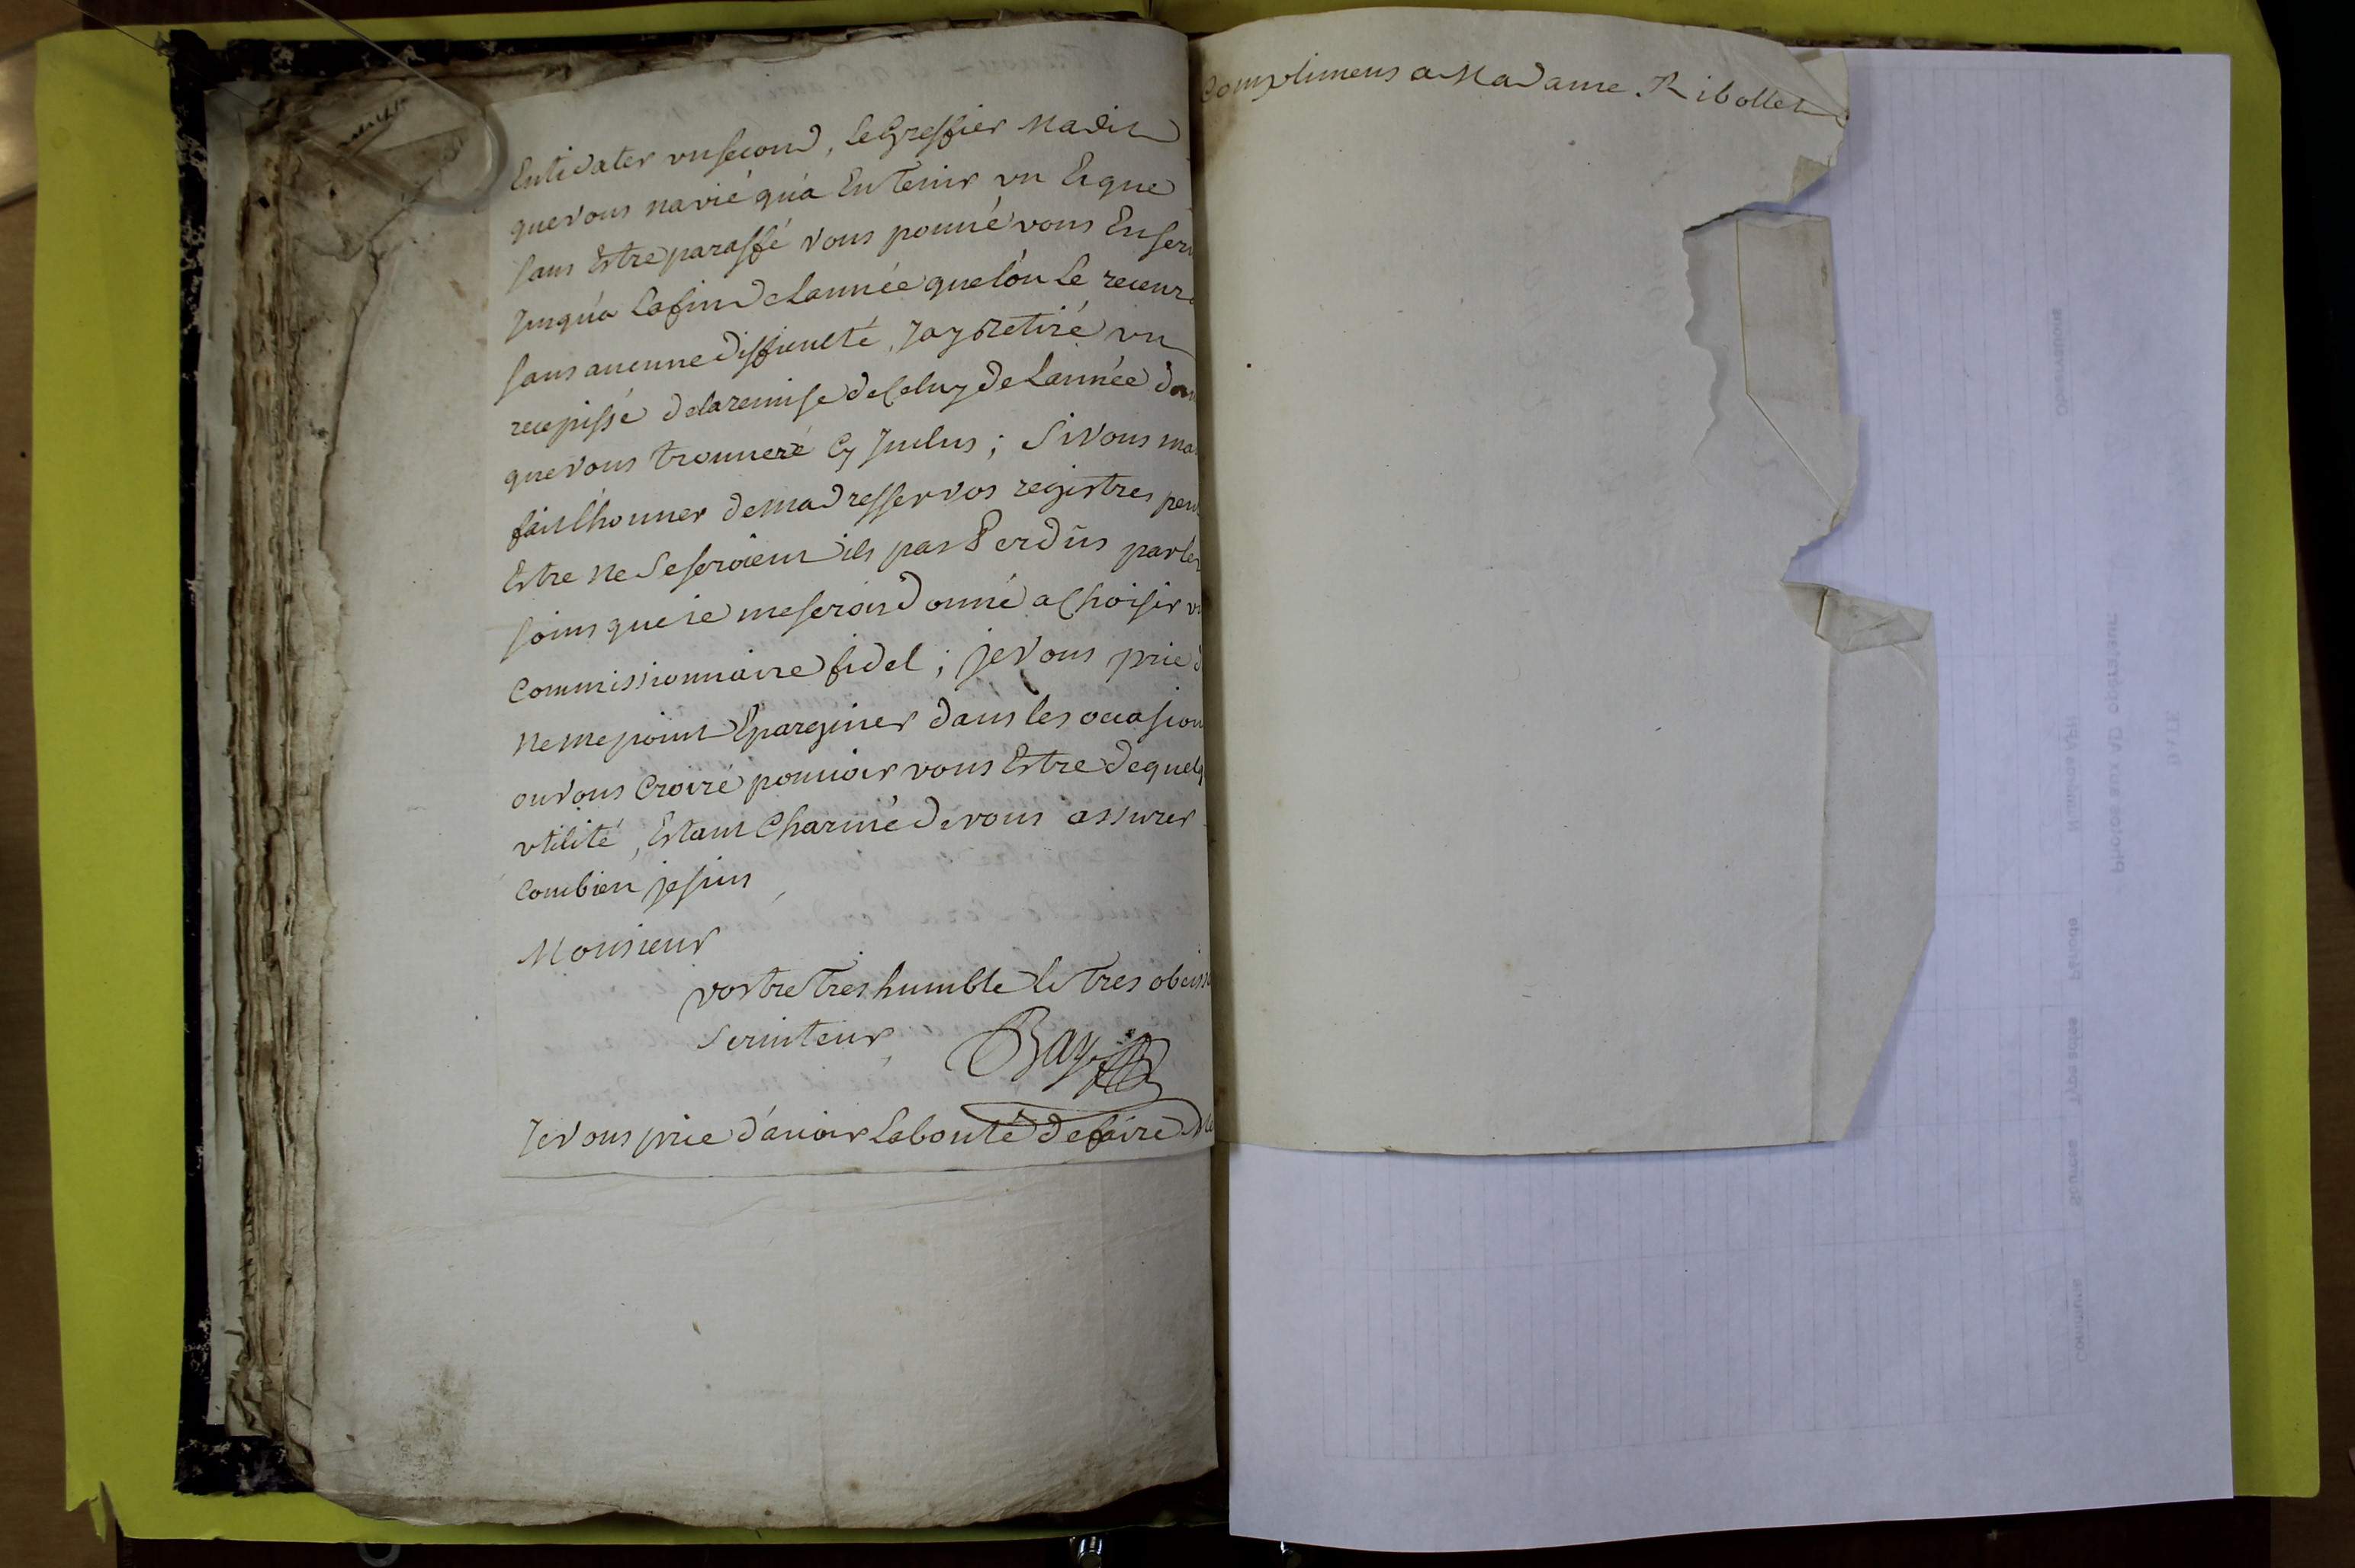 Entidater vn second, le Greffier Ma dit
que vous n'avié qu'a En tenir vn Et que
sans Estre paraffé vous pouvié vous En serv
Jusqu'a la fin de lannée que lón le recevra
sans aucune difficulté, Jay Retiré vn
recepissé de la remise de Celuy de Lannée der
que vous trouveré Cy Jnclus ; Si Vous ma
fait lhonner de madresser vos registres peu
Estre ne se seroient ils pas Perdüs par les
soins que ie me serois donné a Choisir v
Commissionnaire fidel ; je Vous prie d
ne me point Eparginer dans les occasion
ou vous Croiré pouvoir vous Estre de quelq
vtilité, Estant Charmé de vous assurer
Combien je suis
Monsieur
vostre Tres humble Et Tres obeiss
Serviteur
Bay
Je vous prie d'avoir La bonté de faire Me
Complimens a Madame Ribollet
Observations
Numéros APH
Photos aux AD Chartraine
DATE
Période
Type actes
Sources
Commune